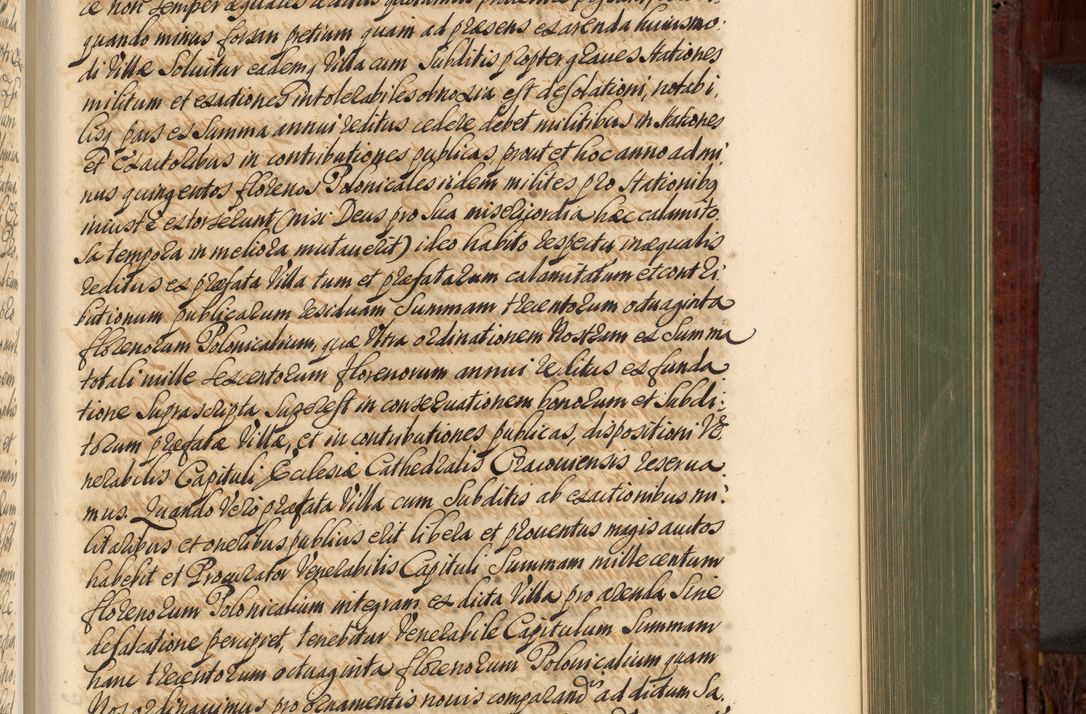 ac non semper æquales reditus
quando minus forsan pretium quam ad præsens ex arenda huiusmo-
di Villæ Soluitur eademq Villa cum Subditis propter graues stationes
militum et exactiones intolerabiles obnoxia est desolationi, notabi,
lisq pars ex Summa annui reditus cedere debet militibus in stationes
et Exactoribus in contributiones publicas, prout et hoc anno ad mi,
nus quingentos florenos Polonicales iidem milites pro stationibq
iniuste extorserunt (nisi Deus pro Sua misericordia hæc calamito
Sa tempora in meliora mutauerit) ideo habito respectu inæqualis
reditus ex præfata Villa tum et præfatarum calamitatum et contri
butionum publicarum residuam Summam trecentorum octuaginta
florenorum Polonicalium, quæ Vltra ordinationem Nostram ex Summa
totali mille sexcentorum florenorum annui reditus ex funda
tione Suprascripta Superest in conseruationem bonorum et Subdi-
torum præfatæ Villæ, et in contributiones publicas, dispositioni Ve
nerabilis Capituli Ecclesiæ Cathedralis Cracouiensis reserua
mus. Quando Vero præfata Villa cum Subditis ab exactionibus mi-
litaribus et oneribus publicis erit libera et prouentus magis auctos
habebit et Procurator Venerabilis Capituli Summam mille centum
florenorum Polonicalium integram ex dicta Villa pro arenda Sine
defalcatione percipret, tenebitur Venerabile Capitulum Summam
hanc trecentorum octuaginta florenorum Polonicalium quam
Nos ordinauimus pro ornamentis nouis comparandis ad dictum Sa,